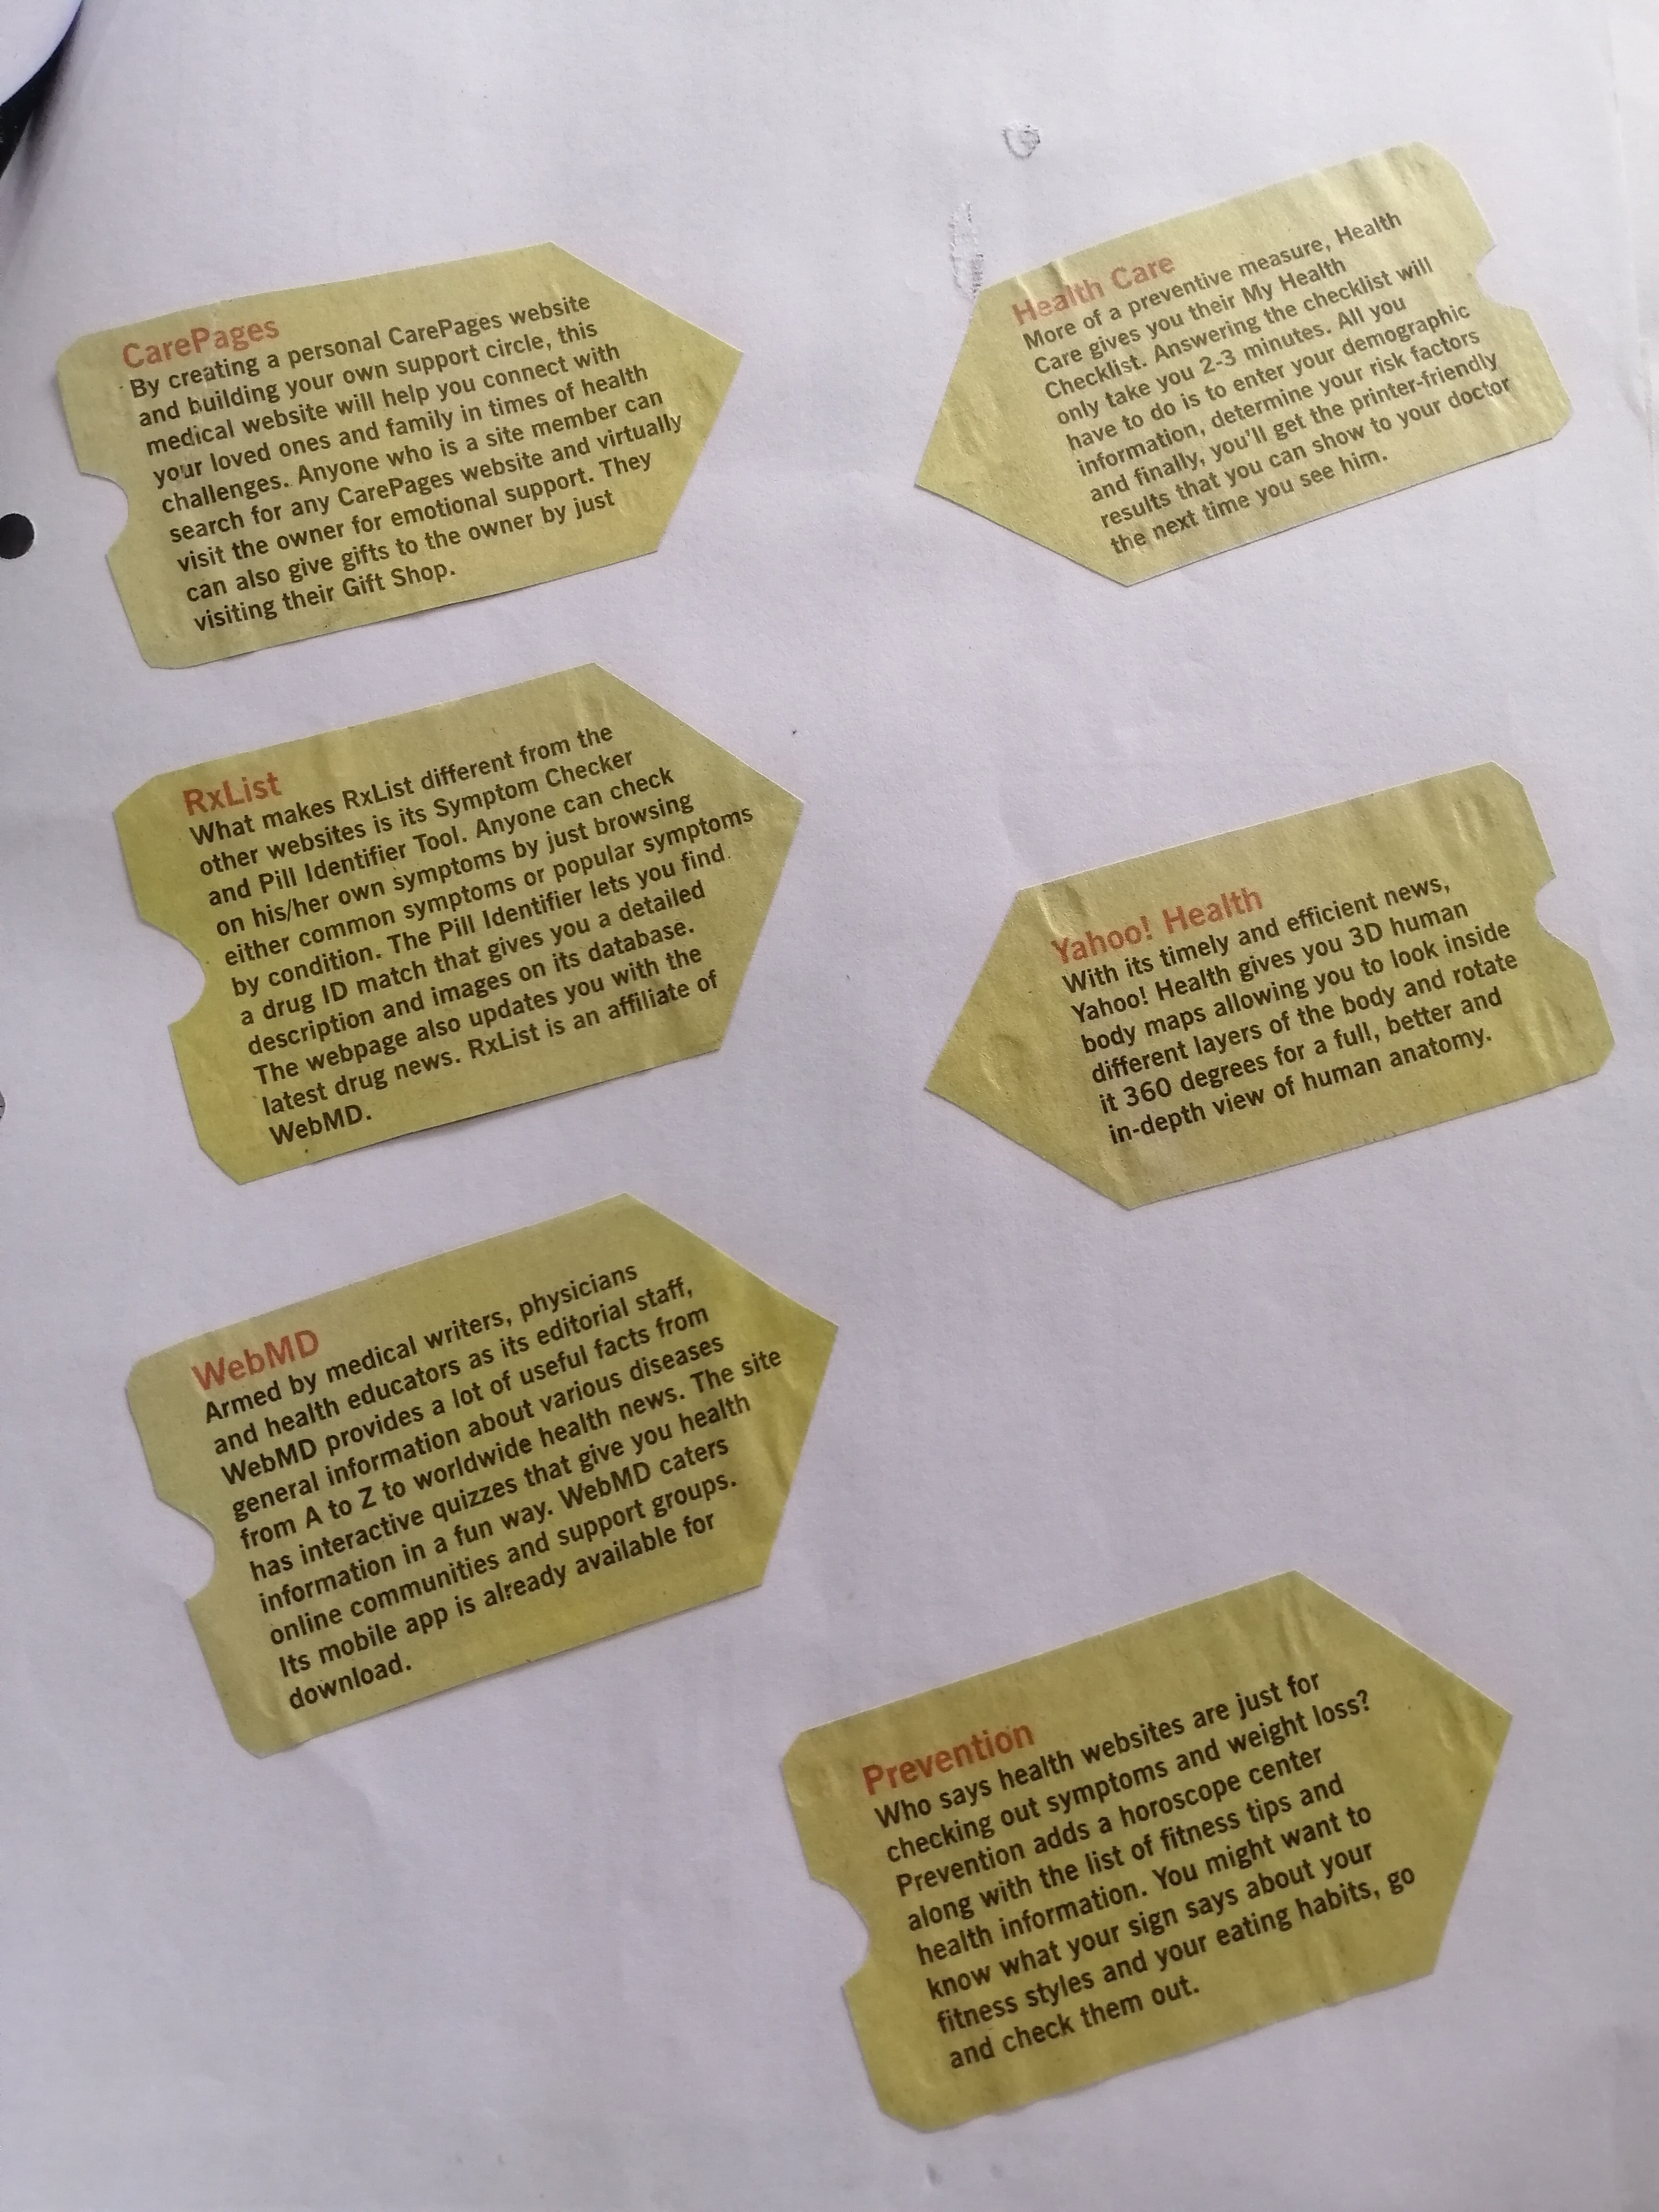 CarePages
By creating a personal CarePages website
and building your own support circle, this
medical website will help you connect with
your loved ones and family in times of health
challenges. Anyone who is a site member can
search for any CarePages website and virtually
visit the owner for emotional support. They
can also give gifts to the owner by just
visiting their Gift Shop.
Health Care
More of a preventive measure, Health
Care gives you their My Health
Checklist. Answering the checklist will
only take you 2-3 minutes. All you
have to do is to enter your demographic
information, determine your risk factors
and finally, you'll get the printer-friendly
results that you can show to your doctor
the next time you see him.
RxList
What makes RxList different from the
other websites is its Symptom Checker
and Pill Identifier Tool. Anyone can check
on his/her own symptoms by just browsing
either common symptoms or popular symptoms
by condition. The Pill Identifier lets you find
a drug ID match that gives you a detailed
description and images on its database.
The webpage also updates you with the
latest drug news. RxList is an affiliate of
WebMD.
Yahoo! Health
With its timely and efficient news,
Yahoo! Health gives you 3D human
body maps allowing you to look inside
different layers of the body and rotate
it 360 degrees for a full, better and
in-depth view of human anatomy.
WebMD
Armed by medical writers, physicians
and health educators as its editorial staff,
WebMD provides a lot of useful facts from
general information about various diseases
from A to Z to worldwide health news. The site
has interactive quizzes that give you health
information in a fun way. WebMD caters
online communities and support groups.
Its mobile app is already available for
download.
Prevention
Who says health websites are just for
checking out symptoms and weight loss?
Prevention adds a horoscope center
along with the list of fitness tips and
health information. You might want to
know what your sign says about your
fitness styles and your eating habits, go
and check them out.